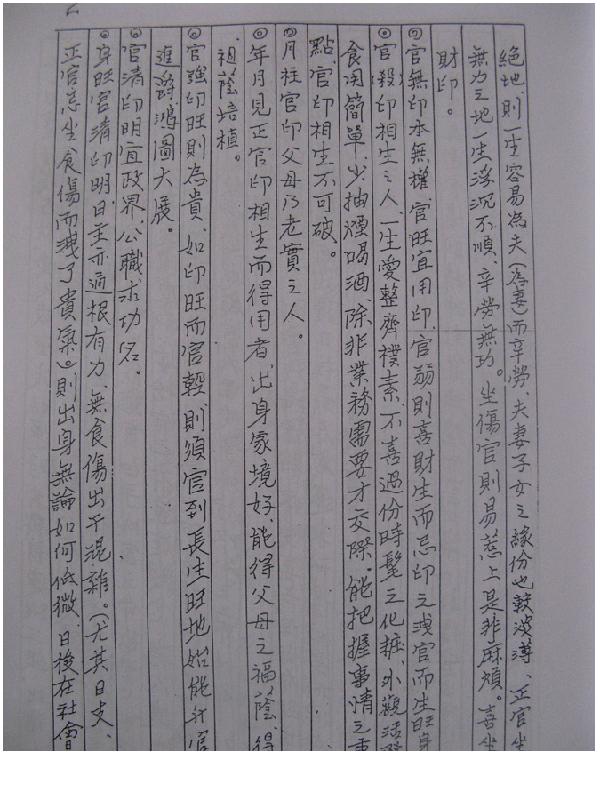 絕地，則一生容易為夫（為妻）而辛勞、夫妻子女之緣份也較波薄、正官坐
無力之地一生浮沉不順、辛勞無功。坐傷官則易惹上是非麻煩。喜坐
財印。
官無印本無權、官旺宜用印、官弱則喜財生而忌印之洩官而生旺身
官殺印相生之人、一生愛整齊樸素、不喜過份時髦之化粧、外觀活
食用簡單、少抽煙喝酒、除非業務需要才交際。能把握事情之重
點、官印相生不可破。
月柱官印父母乃老實之人。
年月見正官印相生而得用者、出身家境好、能得父母之福蔭、得
祖蔭培植。
官強印旺則為貴、如印旺而官輕則須官到長生旺地始能升官
進爵鴻圖大展。
官清印明宜政界、公職求功名、
身旺官清印明日主亦通根有力、無食傷出干混雜。（尤其日支、
正官忌坐食傷而洩了貴氣。）則出身無論如何低微、日後在社會